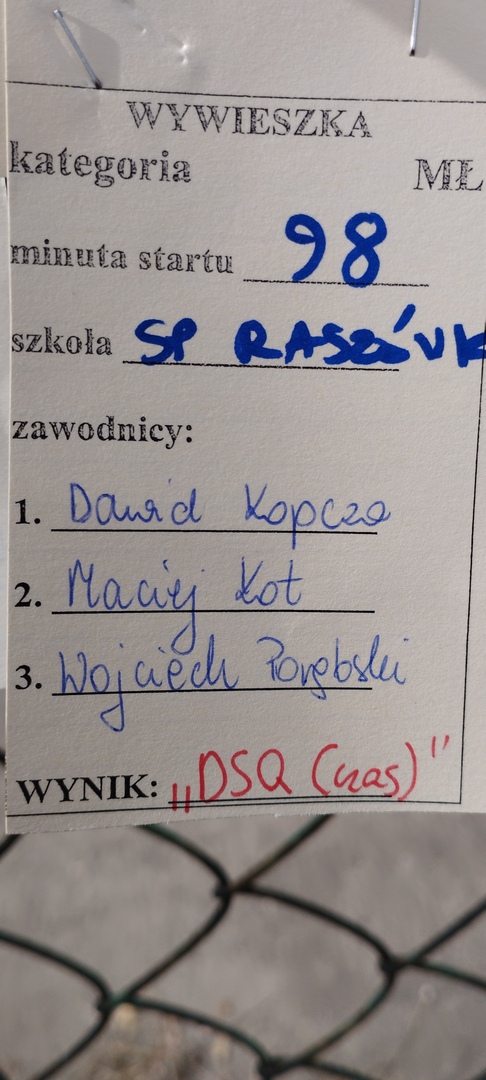 WYWIESZKA
kategoria MŁ
minuta startu 98
szkoła SP RASZÓWK
zawodnicy:
1. Dawid Kopcza
2. Maciej Kot
3. Wojciech Porębski
WYNIK: „DSQ (czas)"